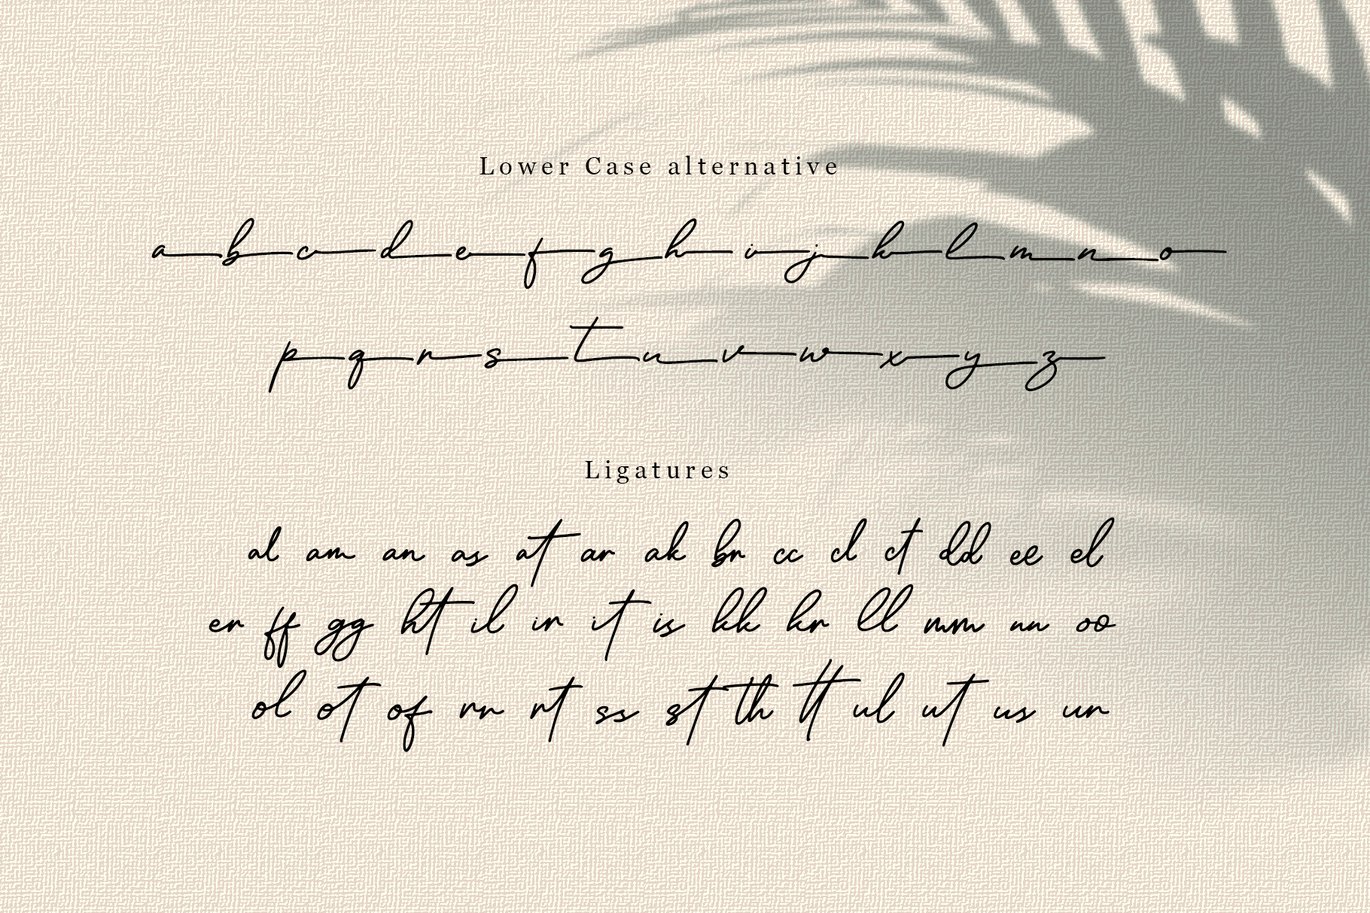 Lower Case alternative
a b c d e f g h i j k l m n o
p q r s t u v w x y z
Ligatures
al am an as at ar ak br cc cl ct dd ee el
er ff gg ht il ir it is kk kr ll mm nn oo
ol ot of rr rt ss st th tt ul ut us ur